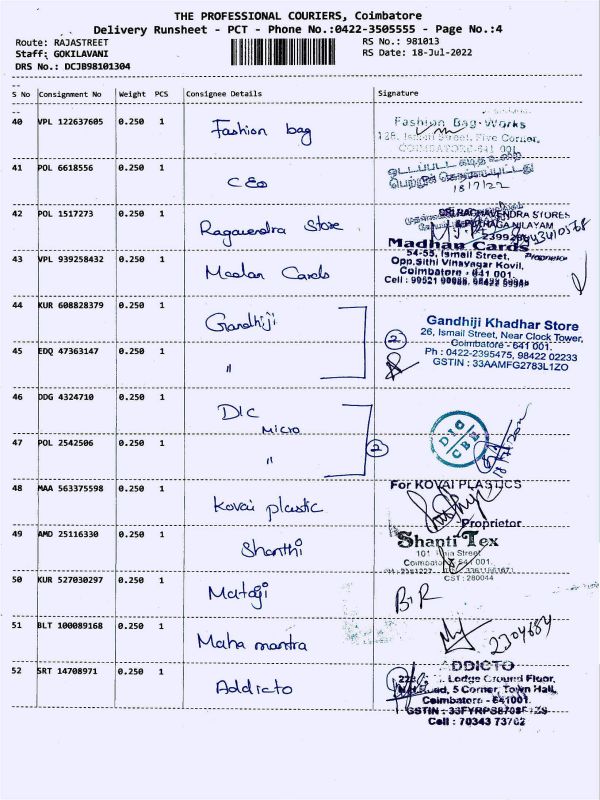 THE PROFESSIONAL COURIERS, Coimbatore
Delivery Runsheet - PCT - Phone No.:0422-3505555 - Page No.:4
Route: RAJASTREET
RS No.: 981013
Staff: GOKILAVANI
RS Date: 18-Jul-2022
DRS No.: DCJB98101304
S No Consignment No Weight PCS Consignee Details Signature
40 VPL 122637605 0.250 1 Fashion bag
Fashion Bag Works
128, Ismail Street, Five Corner,
COIMBATORE-641 001.
41 POL 6618556 0.250 1 CEO
18/7/22
42 POL 1517273 0.250 1 Ragavendra Store
SRI RAGHAVENDRA STORES
43 VPL 939258432 0.250 1 Madan Cards
Madhan Cards
54-55, Ismail Street,
Proprietor
Opp.Sithi Vinayagar Kovil,
Coimbatore - 641 001.
44 KUR 608828379 0.250 1 Gandhiji
Gandhiji Khadhar Store
26, Ismail Street, Near Clock Tower,
Coimbatore - 641 001.
Ph : 0422-2395475, 98422 02233
GSTIN : 33AAMFG2783L1ZO
2
45 EDQ 47363147 0.250 1 "
46 DDG 4324710 0.250 1 DIC
MICRO
DIC
CBE
47 POL 2542506 0.250 1 "
2
48 MAA 563375598 0.250 1 Kovai plastic
For KOVAI PLASTICS
Proprietor
49 AMD 25116330 0.250 1 Shanthi
Shanti Tex
CST : 280044
50 KUR 527030297 0.250 1 Mataji
51 BLT 100089168 0.250 1 Maha mantra
2304684
52 SRT 14708971 0.250 1 Addicto
ADDICTO
Lodge Ground Floor,
Road, 5 Corner, Town Hall,
Coimbatore - 641001.
Cell : 70343 73702